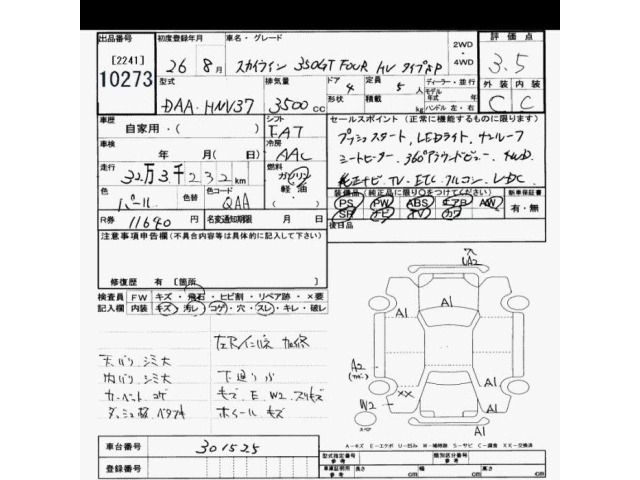 出品番号 初度登録年月 車名・グレード 2WD・4WD 評価点
[2241] 26 8月 スカイライン 350GT FOUR HV タイプSP 3.5
10273 型式 排気量 ドア 4 定員 5人 ディーラー・並行 外装 内装
DAA-HNV37 3500cc 形状 積載 kg モデル年式 年 ハンドル 左・右 C C
車歴 シフト セールスポイント(正常に機能するものに限ります)
自家用・( ) FA7 プッシュスタート、LEDライト サンルーフ
車検 冷房 シートヒーター、360°アラウンドビュー、4WD
年 月(日) AAC 純正ナビ TV、ETC クルコン、VDC
走行 燃料
32万3千232km ガソリン 軽油
色 色コード 装備品(純正品に限り○をつけて下さい) 新車保証書
パール QAA PS PW ABS エアB AW 有・無
R券 11640円 名変通知期限 月 日 SR ナビ TV カワ
注意事項申告欄(不具合内容等は具体的に記入して下さい) 後日品
修復歴 有[箇所
検査員 FW キズ・飛石・ヒビ割・リペア跡・×要
記入欄 内装 キズ・汚レ・コゲ・穴・スレ・キレ・破レ
天バリ シミ大
内バリ シミ大
カーペット コゲ キズ、E W2 スリキズ
ホイール キズ
UA2
A1 A1
A2
W2 XX A1
A1
A-キズ E-エクボ U-凹み W-補修跡 S-サビ C-腐食 XX-交換済
車台番号 301525 型式指定番号 参考 類別区分番号 参考
登録番号 車庫証明用 参考 長さ cm 幅 cm 高さ cm